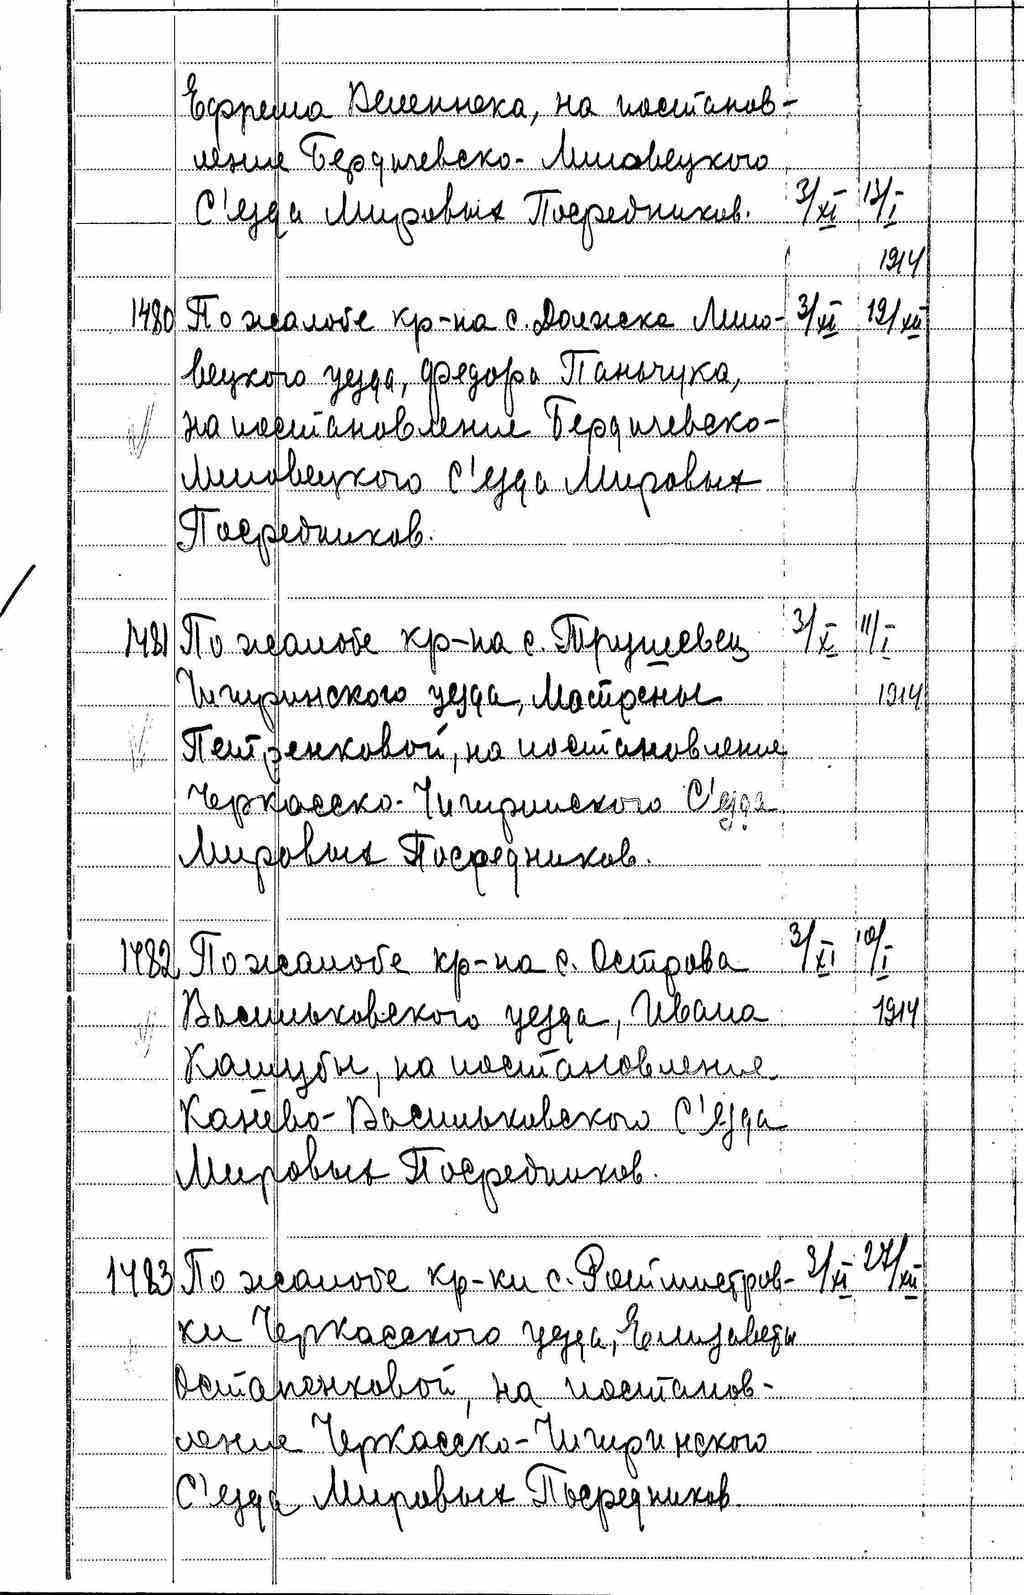 Ефрема Веленнека, на постанов-
ление Бердичевско-Липовецкого
С'езда Мировых Посредников. 3/XI 13/I
1914
1480 По жалобе кр-на с. Должека Липо- 3/XI 19/XII
вецкого уезда, Федора Паньчука,
на постановление Бердичевско-
Липовецкого С'езда Мировых
Посредников.
1481 По жалобе кр-на с. Трушевец 3/XI 11/I
Чигиринского уезда, Матрены 1914
Петренковой, на постановление
Черкасско-Чигиринского С'езда
Мировых Посредников.
1482 По жалобе кр-на с. Острова 3/XI 10/I
Васильковского уезда, Ивана 1914
Кашубы, на постановление
Канево-Васильковского С'езда
Мировых Посредников.
1483 По жалобе кр-ки с. Ротмистров- 3/XI 27/XII
ки Черкасского уезда, Елизаветы
Остапенковой, на постанов-
ление Черкасско-Чигиринского
С'езда Мировых Посредников.